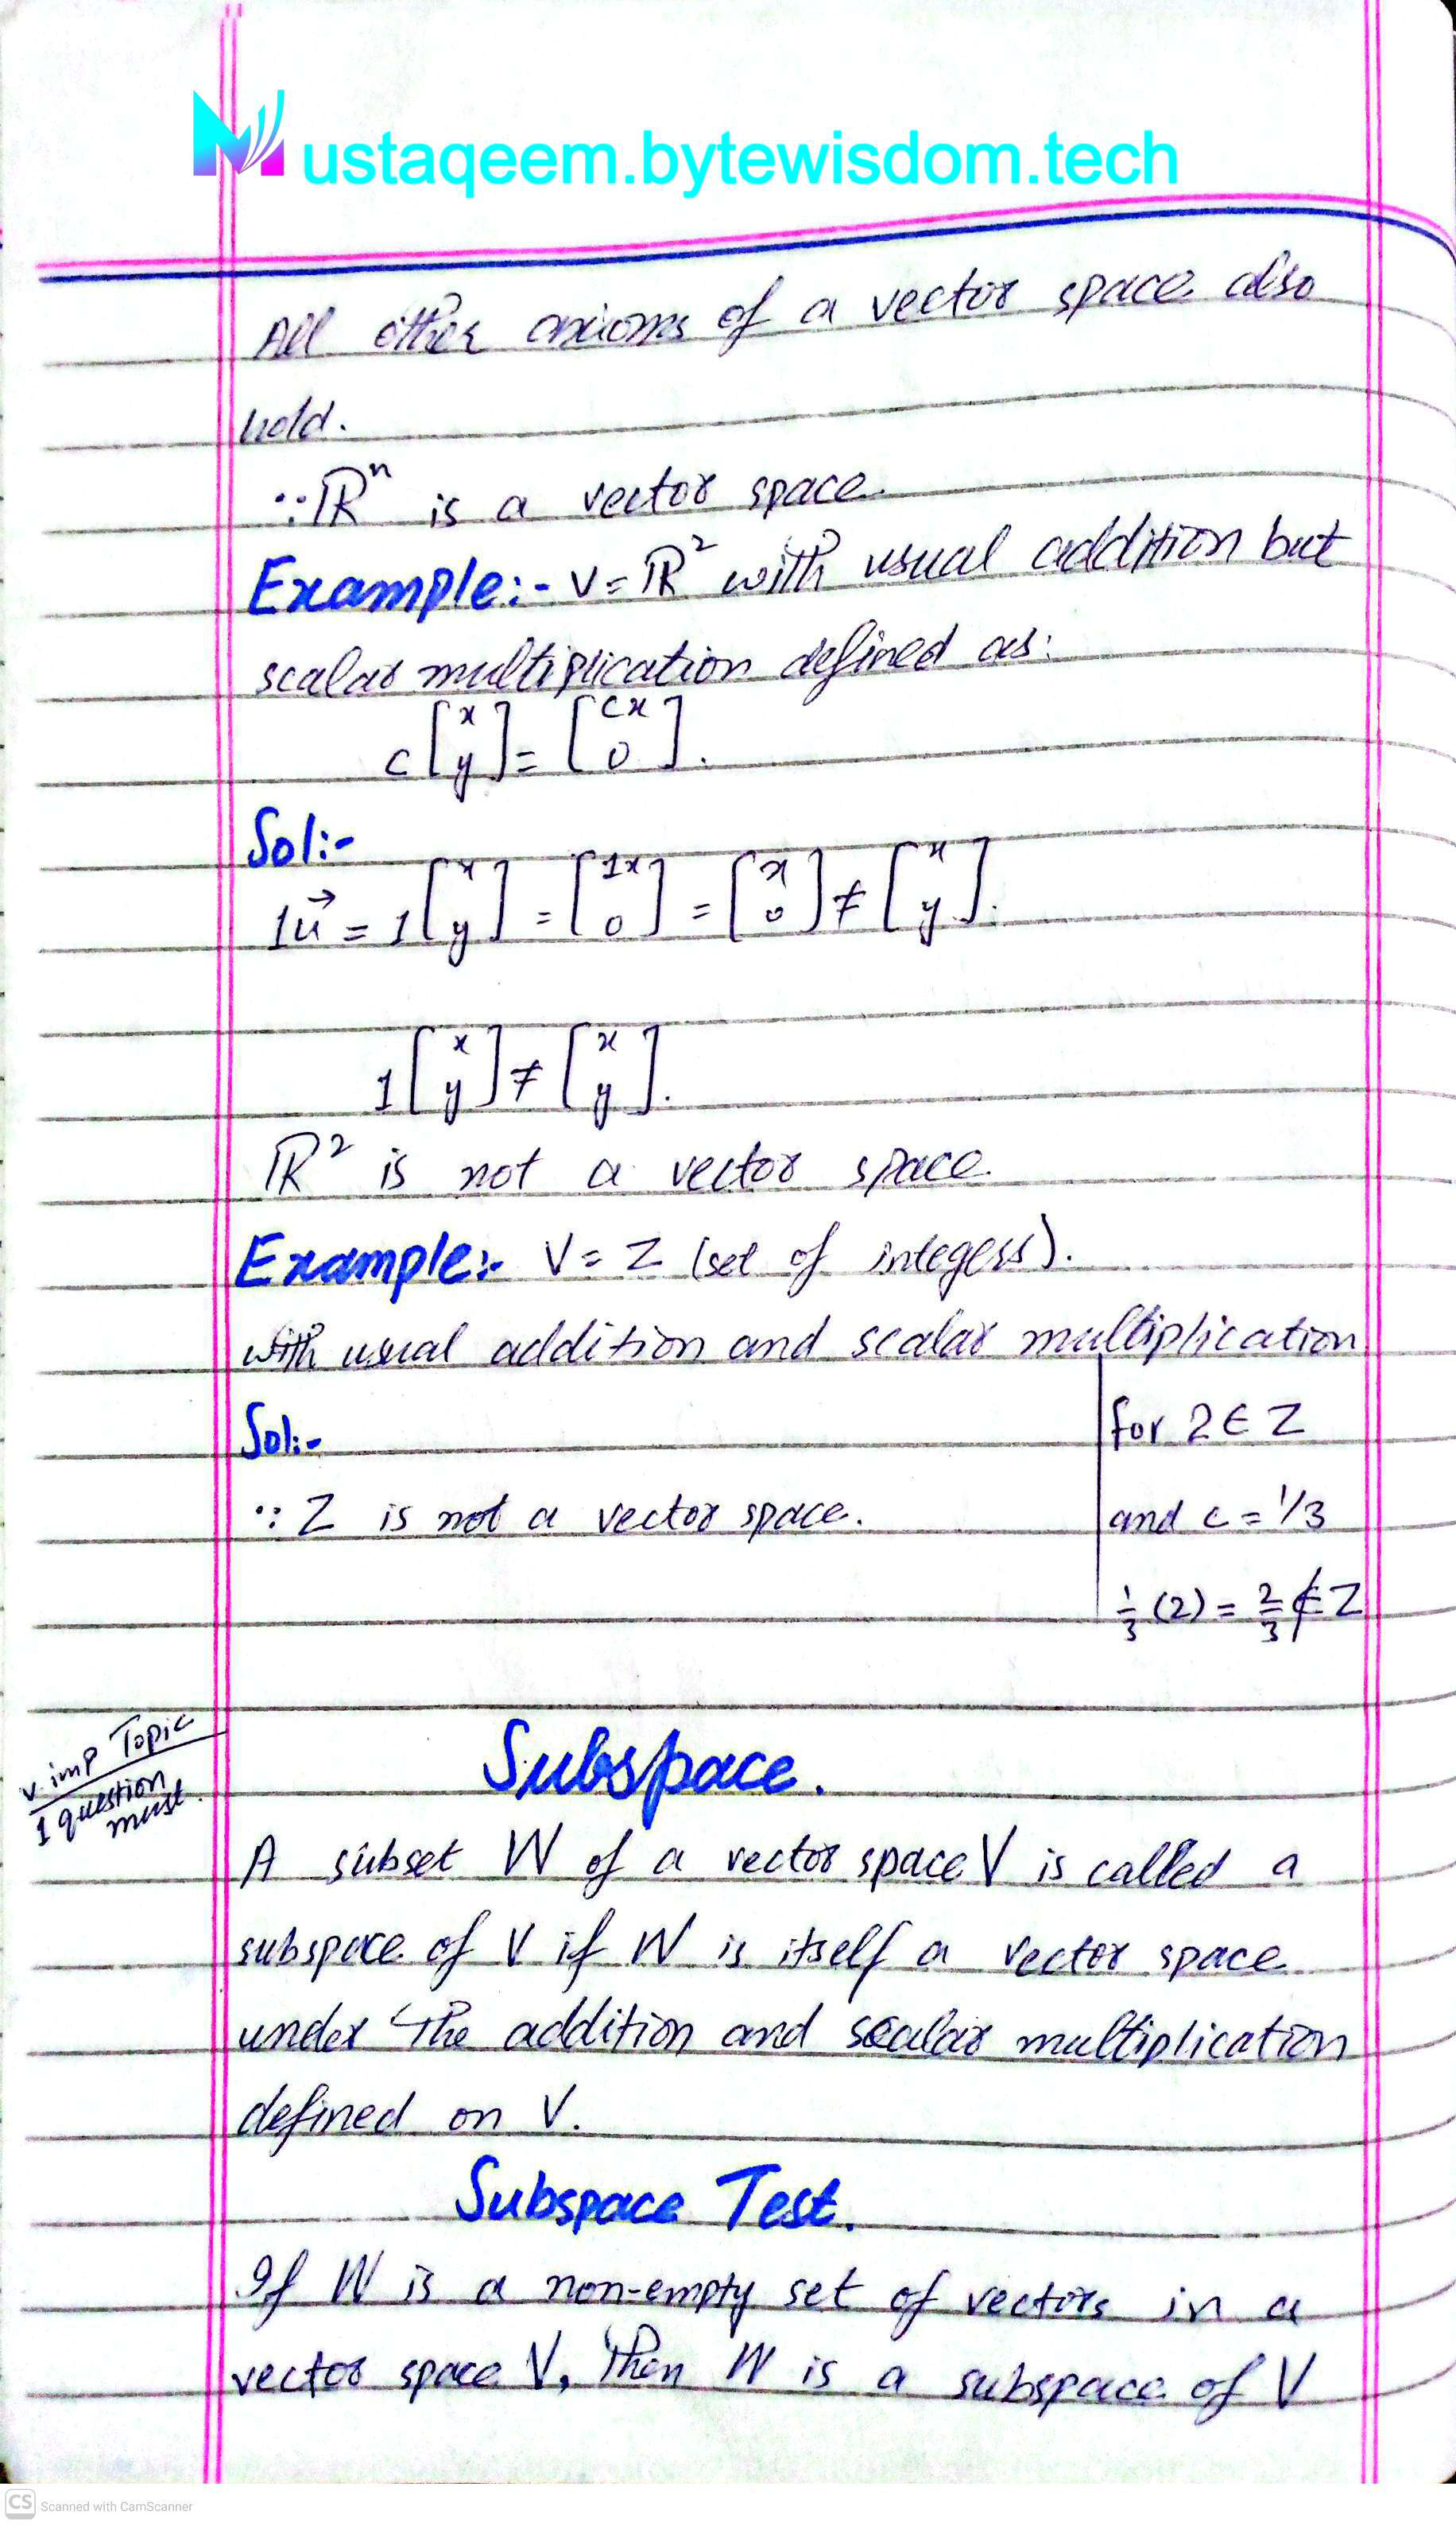 Mustaqeem.bytewisdom.tech
All other axioms of a vector space also
hold.
∵ ℝⁿ is a vector space.
Example:- V = ℝ² with usual addition but
scalar multiplication defined as:
c[x y] = [cx 0].
Sol:-
1u⃗ = 1[x y] = [1x 0] = [x 0] ≠ [x y].
1[x y] ≠ [x y].
ℝ² is not a vector space.
Example:- V = Z (set of integers).
with usual addition and scalar multiplication
Sol:-
∵ Z is not a vector space.
for 2 ∈ Z
and c = 1/3
1/3 (2) = 2/3 ∉ Z
v. imp Topic
1 question
must.
Subspace.
A subset W of a vector space V is called a
subspace of V if W is itself a vector space
under the addition and scalar multiplication
defined on V.
Subspace Test.
If W is a non-empty set of vectors in a
vector space V, then W is a subspace of V
CS Scanned with CamScanner